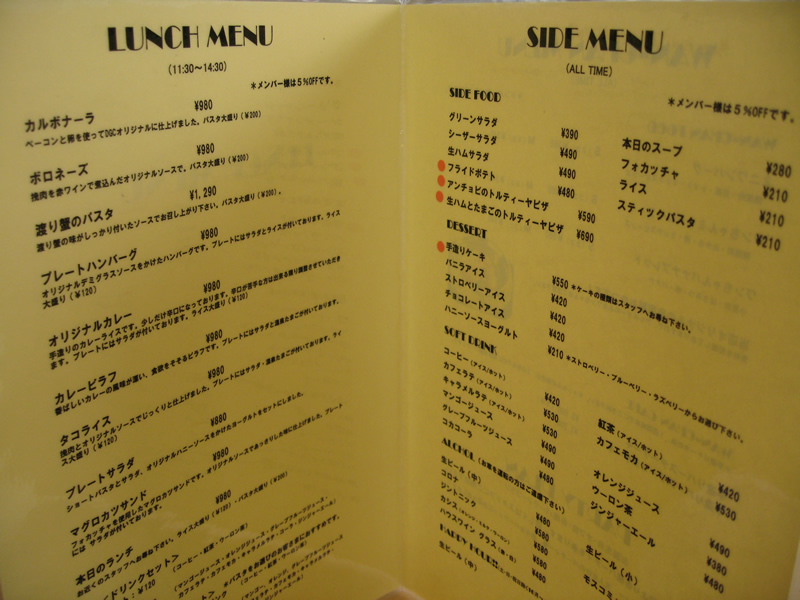 LUNCH MENU
(11:30～14:30)
＊メンバー様は５％OFFです。
カルボナーラ ¥980
ベーコンと卵を使ってDGCオリジナルに仕上げました。パスタ大盛り(¥200)
ボロネーズ ¥980
挽肉を赤ワインで煮込んだオリジナルソースで。パスタ大盛り(¥200)
渡り蟹のパスタ ¥1,290
渡り蟹の味がしっかり付いたソースでお召し上がり下さい。パスタ大盛り(¥200)。
プレートハンバーグ ¥980
オリジナルデミグラスソースをかけたハンバーグです。プレートにはサラダとライスが付いております。ライス
大盛り(¥120)
オリジナルカレー ¥980
手造りのカレーライスです。少しだけ辛口になっております。辛口が苦手な方は出来る限り調整させていただき
ます。プレートにはサラダが付いております。ライス大盛り(¥120)
カレーピラフ ¥980
香ばしいカレーの風味が漂い、食欲をそそるピラフです。プレートにサラダと温泉たまごが付いております。
タコライス ¥980
挽肉とオリジナルソースでじっくりと仕上げました。プレートにはサラダ・温泉たまごが付いております。ライ
ス大盛り(¥120)
プレートサラダ ¥880
ショートパスタとサラダ、オリジナルハニーソースをかけたヨーグルトをセットにしました。
マグロカツサンド ¥980
フォカッチャを使用したマグロカツサンドです。オリジナルソースであっさりした味に仕上げました。プレート
には サラダが付いております。
本日のランチ ¥980
お近くのスタッフへお尋ね下さい。ライス大盛り(¥120)・パスタ大盛り(¥200)
ドリンクセット＞
(コーヒー・紅茶・ウーロン茶)
(マンゴージュース・オレンジジュース・グレープフルーツジュース・
カフェラテ・カフェモカ・キャラメルラテ・コーラ・ジンジャエール)
＊パスタをお選びのお客さまにおすすめです。
SIDE MENU
(ALL TIME)
＊メンバー様は５％OFFです。
SIDE FOOD
グリーンサラダ ¥390
シーザーサラダ ¥490
生ハムサラダ ¥490
フライドポテト ¥480
アンチョビのトルティーヤピザ ¥590
生ハムとたまごのトルティーヤピザ ¥690
本日のスープ ¥280
フォカッチャ ¥210
ライス ¥210
スティックパスタ ¥210
DESSERT
手造りケーキ ¥550 ＊ケーキの種類はスタッフへお尋ね下さい。
バニラアイス ¥420
ストロベリーアイス ¥420
チョコレートアイス ¥420
ハニーソースヨーグルト ¥210 ＊ストロベリー・ブルーベリー・ラズベリーからお選び下さい。
SOFT DRINK
コーヒー(アイス/ホット) ¥420
カフェラテ(アイス/ホット) ¥530
キャラメルラテ(アイス/ホット) ¥530
マンゴージュース ¥490
グレープフルーツジュース ¥490
コカコーラ ¥480
紅茶(アイス/ホット) ¥420
カフェモカ(アイス/ホット) ¥530
オレンジジュース ¥490
ウーロン茶 ¥380
ジンジャーエール ¥480
ALCHOL (お車を運転の方はご遠慮下さい)
生ビール(中)
コロナ
ジントニック
カシス
ハウスワイン グラス(赤・白)
生ビール(小)
モスコミ
HAPPY HOUR!!
生ビール(中)